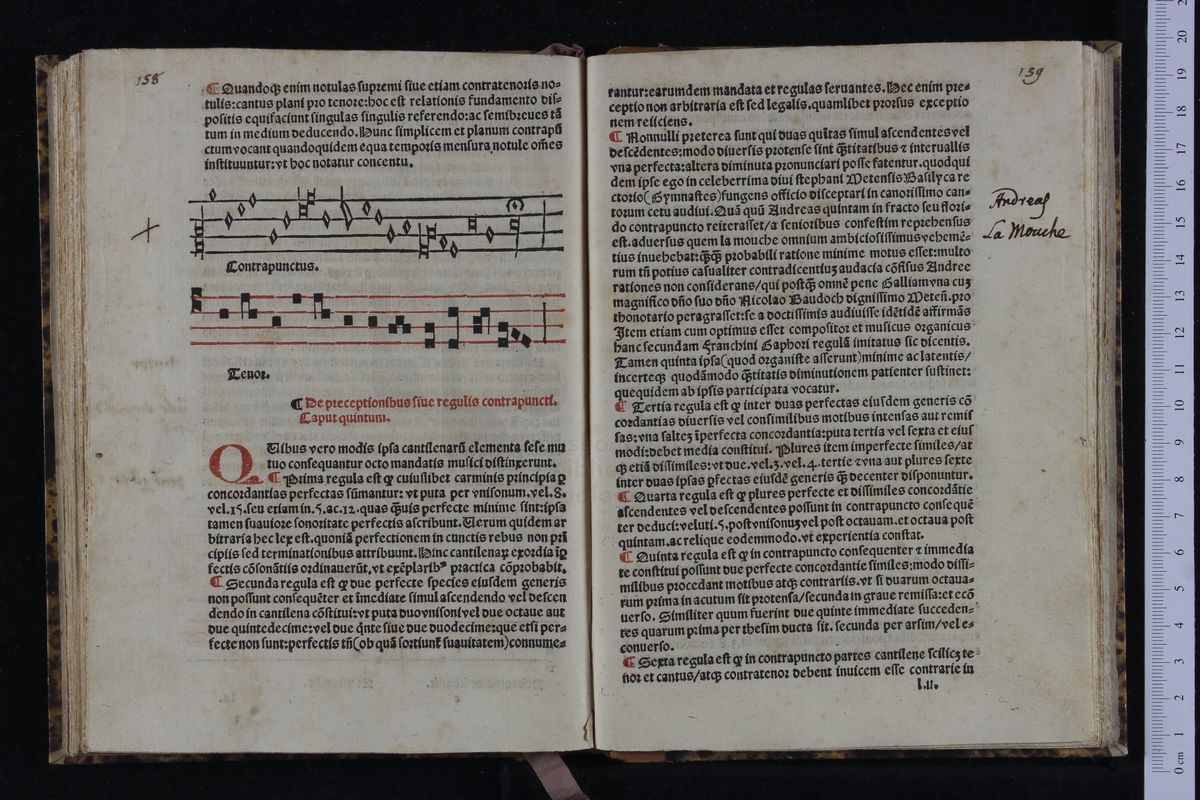 158
¶ Quandoq; enim notulas supremi siue etiam contratenoris no-
tulis:cantus plani pro tenore:hoc est relationis fundamento dis-
positis equifaciunt singulas singulis referendo:ac semibreues tã
tum in medium deducendo.Hunc simplicem et planum contrapũ
ctum vocant quandoquidem equa temporis mensura notule om̃es
instituuntur:vt hoc notatur concentu.
Contrapunctus.
Tenor.
¶ De preceptionibus siue regulis contrapuncti.
Caput quintum.
QUibus vero modis ipsa cantilenarũ elementa sese mu
tuo consequantur octo mandatis musici distinxerunt.
¶ Prima regula est ꝙ cuiuslibet carminis principia ꝑ
concordantias perfectas sũmantur: vt puta per vnisonum.vel.8.
vel.15.seu etiam in.5.ac.12.quas q̃uis perfecte minime sint:ipsa
tamen suauiore sonoritate perfectis ascribunt.Uerum quidem ar
bitraria hec lex est.quoniã perfectionem in cunctis rebus non prĩ
cipiis sed terminationibus attribuunt.Hinc cantilenaꝝ exordia ĩꝑ
fectis cõsonãtiis ordinauerũt.vt exẽplarib⁹ practica cõprobabit.
¶ Secunda regula est ꝙ due perfecte species eiusdem generis
non possunt consequẽter et ĩmediate simul ascendendo vel descen
dendo in cantilena cõstitui:vt puta duo vnisoni vel due octaue aut
due quintedecime:vel due q̃nte siue due duodecime:que etsi per-
fecte non sunt:perfectis tñ(ob quã sortiunt̃ suauitatem)connume-
159
rantur:earumdem mandata et regulas seruantes.Hec enim pre-
ceptio non arbitraria est sed legalis.quamlibet prorsus exceptio
nem reiiciens.
¶ Nonnulli preterea sunt qui duas quĩtas simul ascendentes vel
descẽdentes:modo diuersis protense sint q̃titatibus ⁊ interuallis
vna perfecta:altera diminuta pronunciari posse fatentur.quodqui
dem ipse ego in celeberrima diui stephani Metensis Basilyca re
ctorio(Gymnastes)fungens officio disceptari in canorissimo can-
torum cetu audiui.Quã quũ Andreas quintam in fracto seu flori-
do contrapuncto reiterasset/a senioribus confestim reprehensus
est.aduersus quem la mouche omnium ambiciosissimus vehemẽ-
tius inuehebat:q̃q̃ probabili ratione minime motus esset:multo
rum tñ potius casualiter contradicentiuȝ audacia cõfisus Andree
rationes non considerans/qui postq̃ omnẽ pene Galliam vna cuȝ
magnifico dño suo dño Nicolao Baudoch dignissimo Meteñ.pro
thonotario peragrasset:se a doctissimis audiuisse idẽtidẽ affirmãs
Item etiam cum optimus esset compositor et musicus organicus
hanc secundam Franchini Gaphori regulã imitatus sic dicentis.
Tamen quinta ipsa(quod organiste asserunt)minime ac latentis/
incerteq; quodãmodo q̃titatis diminutionem patienter sustinet:
que quidem ab ipsis participata vocatur.
¶ Tertia regula est ꝙ inter duas perfectas eiusdem generis cõ
cordantias diuersis vel consimilibus motibus intensas aut remis
sas:vna salteȝ ĩperfecta concordantia:puta tertia vel sexta et eius
modi:debet media constitui. Plures item imperfecte similes/at
q; etiã dissimiles:vt due.vel.3.vel.4.tertie ⁊ vna aut plures sexte
inter duas ipsas ꝑfectas eiusdẽ generis q̃decenter disponuntur.
¶ Quarta regula est ꝙ plures perfecte et dissimiles concordãtie
ascendentes vel descendentes possunt in contrapuncto consequẽ
ter deduci:veluti.5.post vnisonuȝ vel post octauam.et octaua post
quintam.ac relique eodem modo.vt experientia constat.
¶ Quinta regula est ꝙ in contrapuncto consequenter ⁊ immedia
te constitui possunt due perfecte concordantie similes:modo dissi-
milibus procedant motibus atq; contrariis.vt si duarum octaua-
rum prima in acutum sit protensa/secunda in graue remissa:et ecõ
uerso. Similiter quum fuerint due quinte immediate succeden-
tes quarum prima per thesim ducta sit. secunda per arsim/vel e-
conuerso.
¶ Sexta regula est ꝙ in contrapuncto partes cantilene scilicȝ te
nor et cantus/atq; contratenor debent inuicem esse contrarie in
l.ii.
Andreas
La Mouche